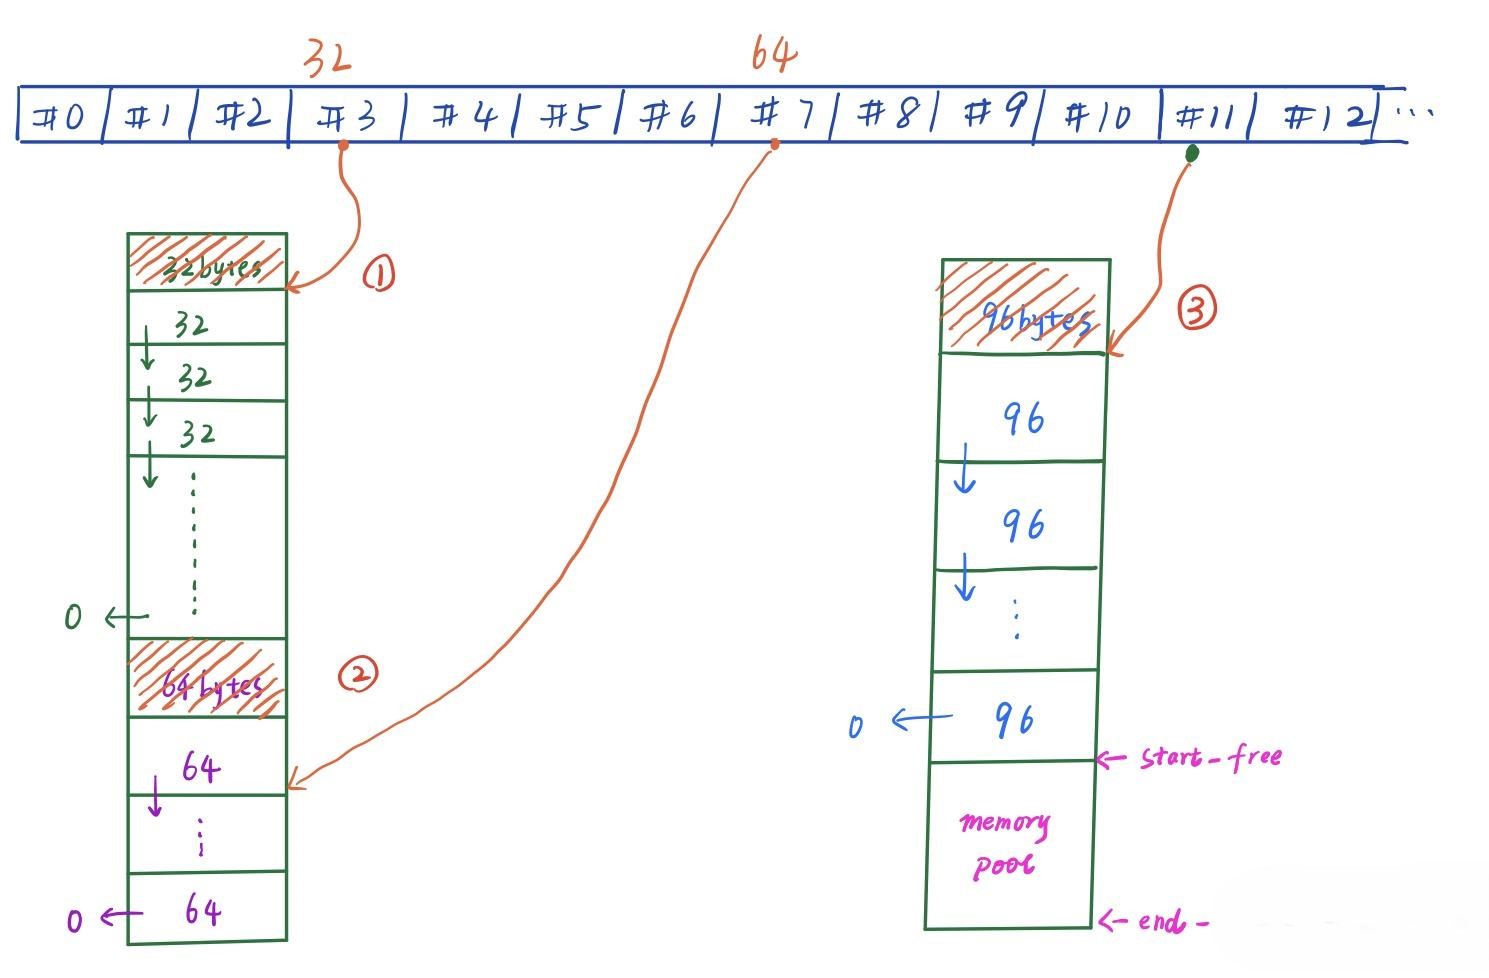 32 64
#0 #1 #2 #3 #4 #5 #6 #7 #8 #9 #10 #11 #12 ...
32bytes
①
32
32
32
0
64bytes
②
64
0
64
③
96bytes
96
96
0
96
start_free
memory
pool
end_